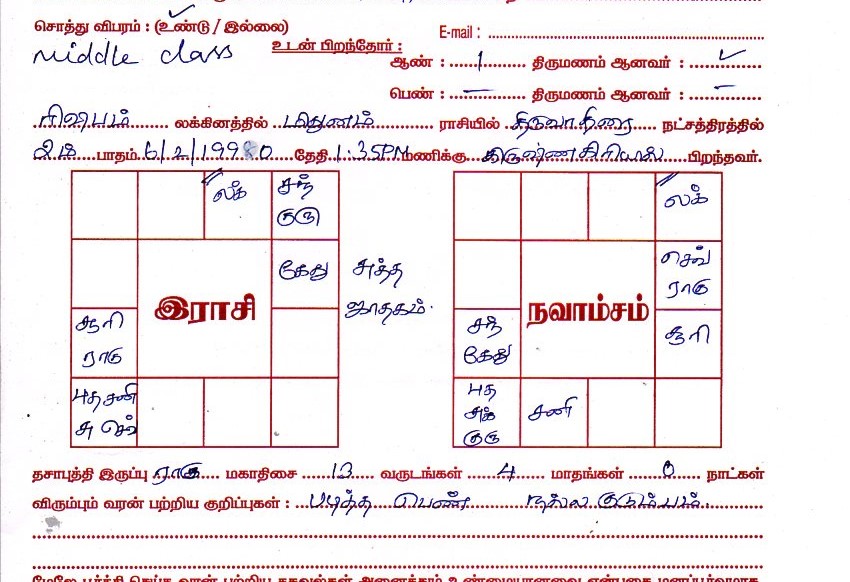 சொத்து விபரம் : (உண்டு / இல்லை)
E-mail :
middle class
உடன் பிறந்தோர் :
ஆண் : 1 திருமணம் ஆனவர் : ✓
பெண் : — திருமணம் ஆனவர் : —
ரிஷபம் லக்கினத்தில் மிதுனம் ராசியில் திருவாதிரை நட்சத்திரத்தில்
2ம் பாதம் 6/2/1990 தேதி 1:35PM மணிக்கு கிருஷ்ணகிரியில் பிறந்தவர்.
லக் சந்
குரு
லக்
கேது
சுத்த
ஜாதகம்.
செவ்
ராகு
சூரி
ராகு
இராசி
நவாம்சம்
சந்
கேது
சூரி
புத சனி
சு செவ்
புத
சுக்
குரு
சனி
தசாபுத்தி இருப்பு ராகு மகாதிசை 13 வருடங்கள் 4 மாதங்கள் 0 நாட்கள்
விரும்பும் வரன் பற்றிய குறிப்புகள் : படித்த பெண் நல்ல குடும்பம்.
மேலே பூர்த்தி செய்த வரன் பற்றிய தகவல்கள் அனைத்தும் உண்மையானவை என்பதை மனப்பூர்வமாக